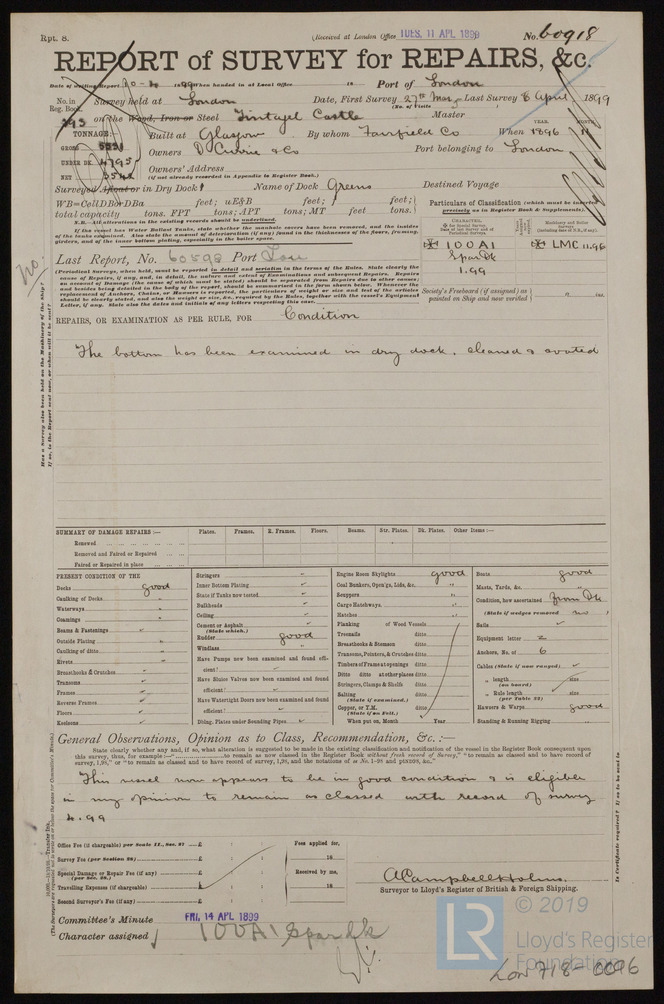 Rpt. 8.
(Received at London Office TUES. 11 APL 1899
No. 60918
REPORT of SURVEY for REPAIRS, &c.
Date of writing Report 10-4 1899 When handed in at Local Office 18 Port of London
No. in Reg. Book.
Survey held at London Date, First Survey 27th Mar, Last Survey 8 April 1899
(No. of Visits
295 on the Wood, Iron or Steel Tintagel Castle Master
TONNAGE:
Built at Glasgow By whom Fairfield Co When 1896 11
YEAR. MONTH.
GROSS 5531
Owners D Currie & Co Port belonging to London
UNDER DK. 4795
Owners' Address
NET 3542
(if not already recorded in Appendix to Register Book.)
Surveyed Afloat or in Dry Dock Name of Dock Greens Destined Voyage
WB=CellDBorDBa feet; uE&B feet; f feet;
total capacity tons. FPT tons; APT tons; MT feet tons.
N.B.—All alterations in the existing records should be underlined.
If the vessel has Water Ballast Tanks, state whether the manhole covers have been removed, and the insides of the tanks examined. Also state the amount of deterioration (if any) found in the thicknesses of the floors, framing, girders, and of the inner bottom plating, especially in the boiler space.
Particulars of Classification (which must be inserted precisely as in Register Book & Supplements).
CHARACTER.
100A1
Spar Dk
1.99
LMC 11.96
Last Report, No. 60598 Port Lon
(Periodical Surveys, when held, must be reported in detail and seriatim in the terms of the Rules. State clearly the cause of Repairs, if any, and, in detail, the nature and extent of Examinations and subsequent Repairs. Repairs on account of Damage (the cause of which must be stated) should be separated from Repairs due to other causes; and besides being detailed in the body of the report, should be summarised in the form shown below. Whenever the replacement of Anchors, Chains, or Hawsers is reported, the particulars of weight or size and test of the articles should be clearly stated, and also the weight or size, &c., required by the Rules, together with the vessel's Equipment Letter, if any. State also the dates and initials of any letters respecting this case.
Society's Freeboard (if assigned) as painted on Ship and now verified
REPAIRS, OR EXAMINATION AS PER RULE, FOR Condition
No.
Has a Survey also been held on the Machinery of the Ship?
If so, is the Report sent now, or when will it be sent?
The bottom has been examined in dry dock, cleaned & coated
SUMMARY OF DAMAGE REPAIRS:— Plates. Frames. R. Frames. Floors. Beams. Str. Plates. Dk. Plates. Other Items:—
Renewed
Removed and Faired or Repaired
Faired or Repaired in place
PRESENT CONDITION OF THE
Decks good
Caulking of Decks "
Waterways "
Coamings "
Beams & Fastenings ✓
Outside Plating "
Caulking of ditto "
Rivets "
Breasthooks & Crutches ✓
Transoms ✓
Frames ✓
Reverse Frames ✓
Floors ✓
Keelsons ✓
Stringers ✓
Inner Bottom Plating ✓
State if Tanks now tested ✓
Bulkheads ✓
Ceiling ✓
Cement or Asphalt ✓
(State which.)
Rudder good
Windlass "
Have Pumps now been examined and found efficient? ✓
Have Sluice Valves now been examined and found efficient? ✓
Have Watertight Doors now been examined and found efficient? ✓
Dblng. Plates under Sounding Pipes ✓
Engine Room Skylights good
Coal Bunkers, Open'gs, Lids, &c. "
Scuppers "
Cargo Hatchways "
Hatches "
Planking of Wood Vessels
Treenails ditto
Breasthooks & Stemson ditto
Transoms, Pointers, & Crutches ditto
Timbers of Frame at openings ditto
Ditto ditto at other places ditto
Stringers, Clamps & Shelfs ditto
Salting ditto
(State if examined.)
Copper, or Y.M. ditto
(State if on Felt.)
When put on, Month Year
Boats good
Masts, Yards, &c. "
Condition, how ascertained From Dk
(State if wedges removed no )
Sails ✓
Equipment letter Z
Anchors, No. of 6
Cables (State if now ranged) ✓
" length size
(on board)
" Rule length size
(per Table 22)
Hawsers & Warps good
Standing & Running Rigging
General Observations, Opinion as to Class, Recommendation, &c.:—
State clearly whether any, and if so, what alteration is suggested to be made in the existing classification and notification of the vessel in the Register Book consequent upon this survey, thus, for example:—" to remain as now classed in the Register Book without fresh record of Survey," "to remain as classed and to have record of survey, 1,98," or "to remain as classed and to have record of survey, 1,98, and the notations of
This vessel now appears to be in good condition & is eligible
in my opinion to remain as classed with record of survey
4.99
Office Fee (if chargeable) per Scale II., Sec. 27 £
Survey Fee (per Section 28) £
Special Damage or Repair Fee (if any) £
(per Sec. 28.)
Travelling Expenses (if chargeable) £
Second Surveyor's Fee (if any) £
Fees applied for,
18
Received by me,
18
A Campbell Holms.
Surveyor to Lloyd's Register of British & Foreign Shipping.
Committee's Minute FRI. 14 APL 1899
Character assigned 100A1 Spar dk
Is Certificate required? If so to be sent to
LR
© 2019
Lloyd's Register
Foundation
Lon 718-0096